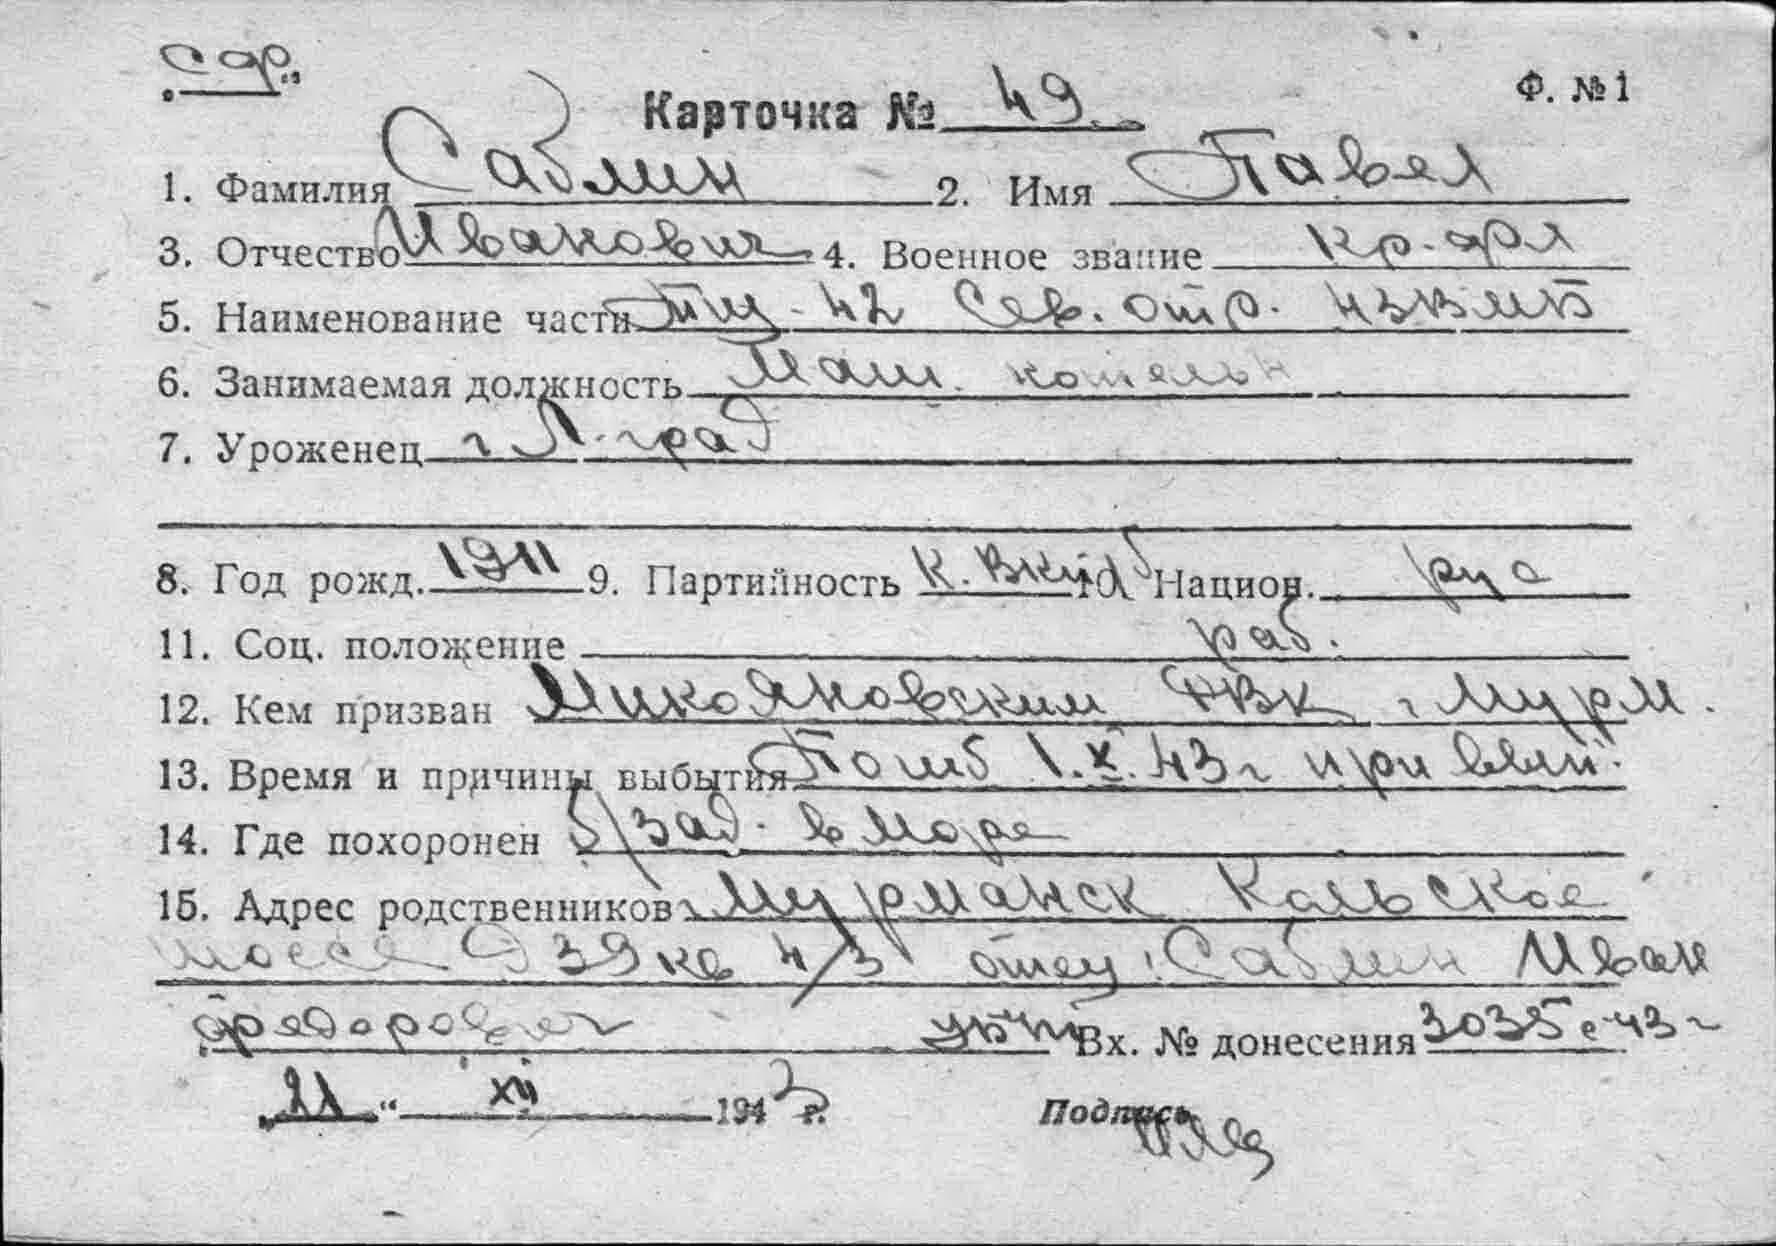 Ф. №1
Карточка № 49
1. Фамилия Саблин 2. Имя Павел
3. Отчество Иванович 4. Военное звание кр-фл
5. Наименование части тщ-42 Сев. отр.
6. Занимаемая должность Маш. котельн
7. Уроженец г Л-град
8. Год рожд. 1911 9. Партийность к. ВКПб 10 Национ. рус
11. Соц. положение раб.
12. Кем призван Микояновским РВК г Мурм.
13. Время и причины выбытия Погиб 1.X.43 г при вып.
14. Где похоронен б/зад. в море
15. Адрес родственников г Мурманск Кольское
шоссе д 39 кв 4/3 отец: Саблин Иван
Федорович Вх. № донесения 3035 с-43 г
„11“ XII 1943 г.
Подпись